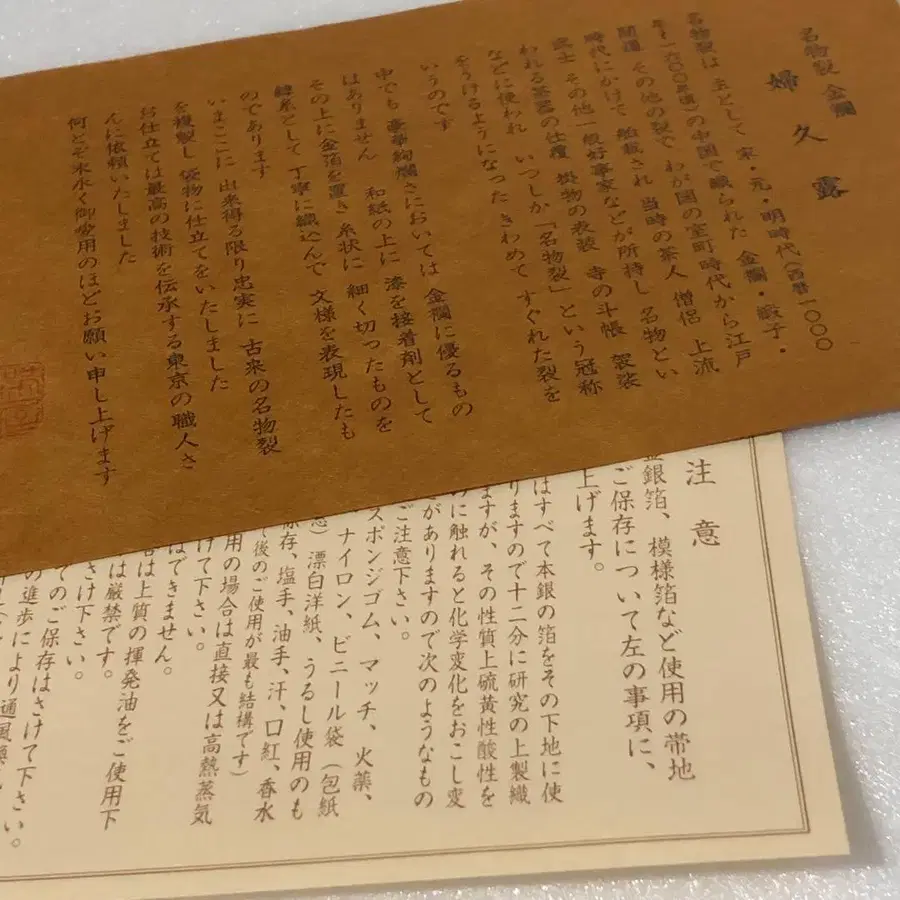 名物裂 金襴
婦久露
名物裂は 主として 宋・元・明時代(西暦一〇〇〇
年〜一六〇〇年頃)の中国で織られた 金襴・緞子・
間道 その他の裂で わが国の室町時代から江戸
時代にかけて 舶載され 当時の茶人 僧侶 上流
武士 その他一般好事家などが所持し 名物とい
われる茶器の仕覆 掛物の表装 寺の斗帳 袈裟
などに使われ いつしか「名物裂」という冠称
をうけるようになった きわめて すぐれた裂を
いうのです
中でも 豪華絢爛さにおいては 金襴に優るもの
はありません 和紙の上に 漆を接着剤として
その上に金箔を置き 糸状に 細く切ったものを
緯糸として 丁寧に織込んで 文様を表現したも
のであります
いまここに 出来得る限り忠実に 古来の名物裂
を複製し 袋物に仕立てをいたしました
お仕立ては最高の技術を伝承する東京の職人さ
んに依頼いたしました
何とぞ末永く御愛用のほどお願い申し上げます
注意
金銀箔、模様箔など使用の帯地
ご保存について左の事項に、
上げます。
はすべて本銀の箔をその下地に使
りますので十二分に研究の上製織
ますが、その性質上硫黄性酸性を
に触れると化学変化をおこし変
がありますので次のようなもの
ご注意下さい。
スポンジゴム、マッチ、火薬、
ナイロン、ビニール袋(包紙
漂白洋紙、うるし使用のも
後のご使用が最も結構です)
保存、塩手、油手、汗、口紅、香水
用の場合は直接又は高熱蒸気
けて下さい。
はできません。
は上質の揮発油をご使用下
は厳禁です。
さけ下さい。
てのご保存はさけて下さい。
の進歩により通風